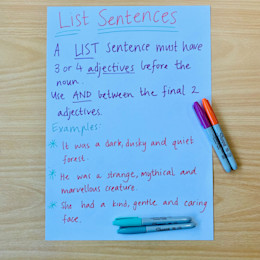 List Sentences
A LIST sentence must have
3 or 4 adjectives before the
noun.
Use AND between the final 2
adjectives.
Examples:
* It was a dark, dusky and quiet
forest.
* He was a strange, mythical and
marvellous creature.
* She had a kind, gentle and caring
face.